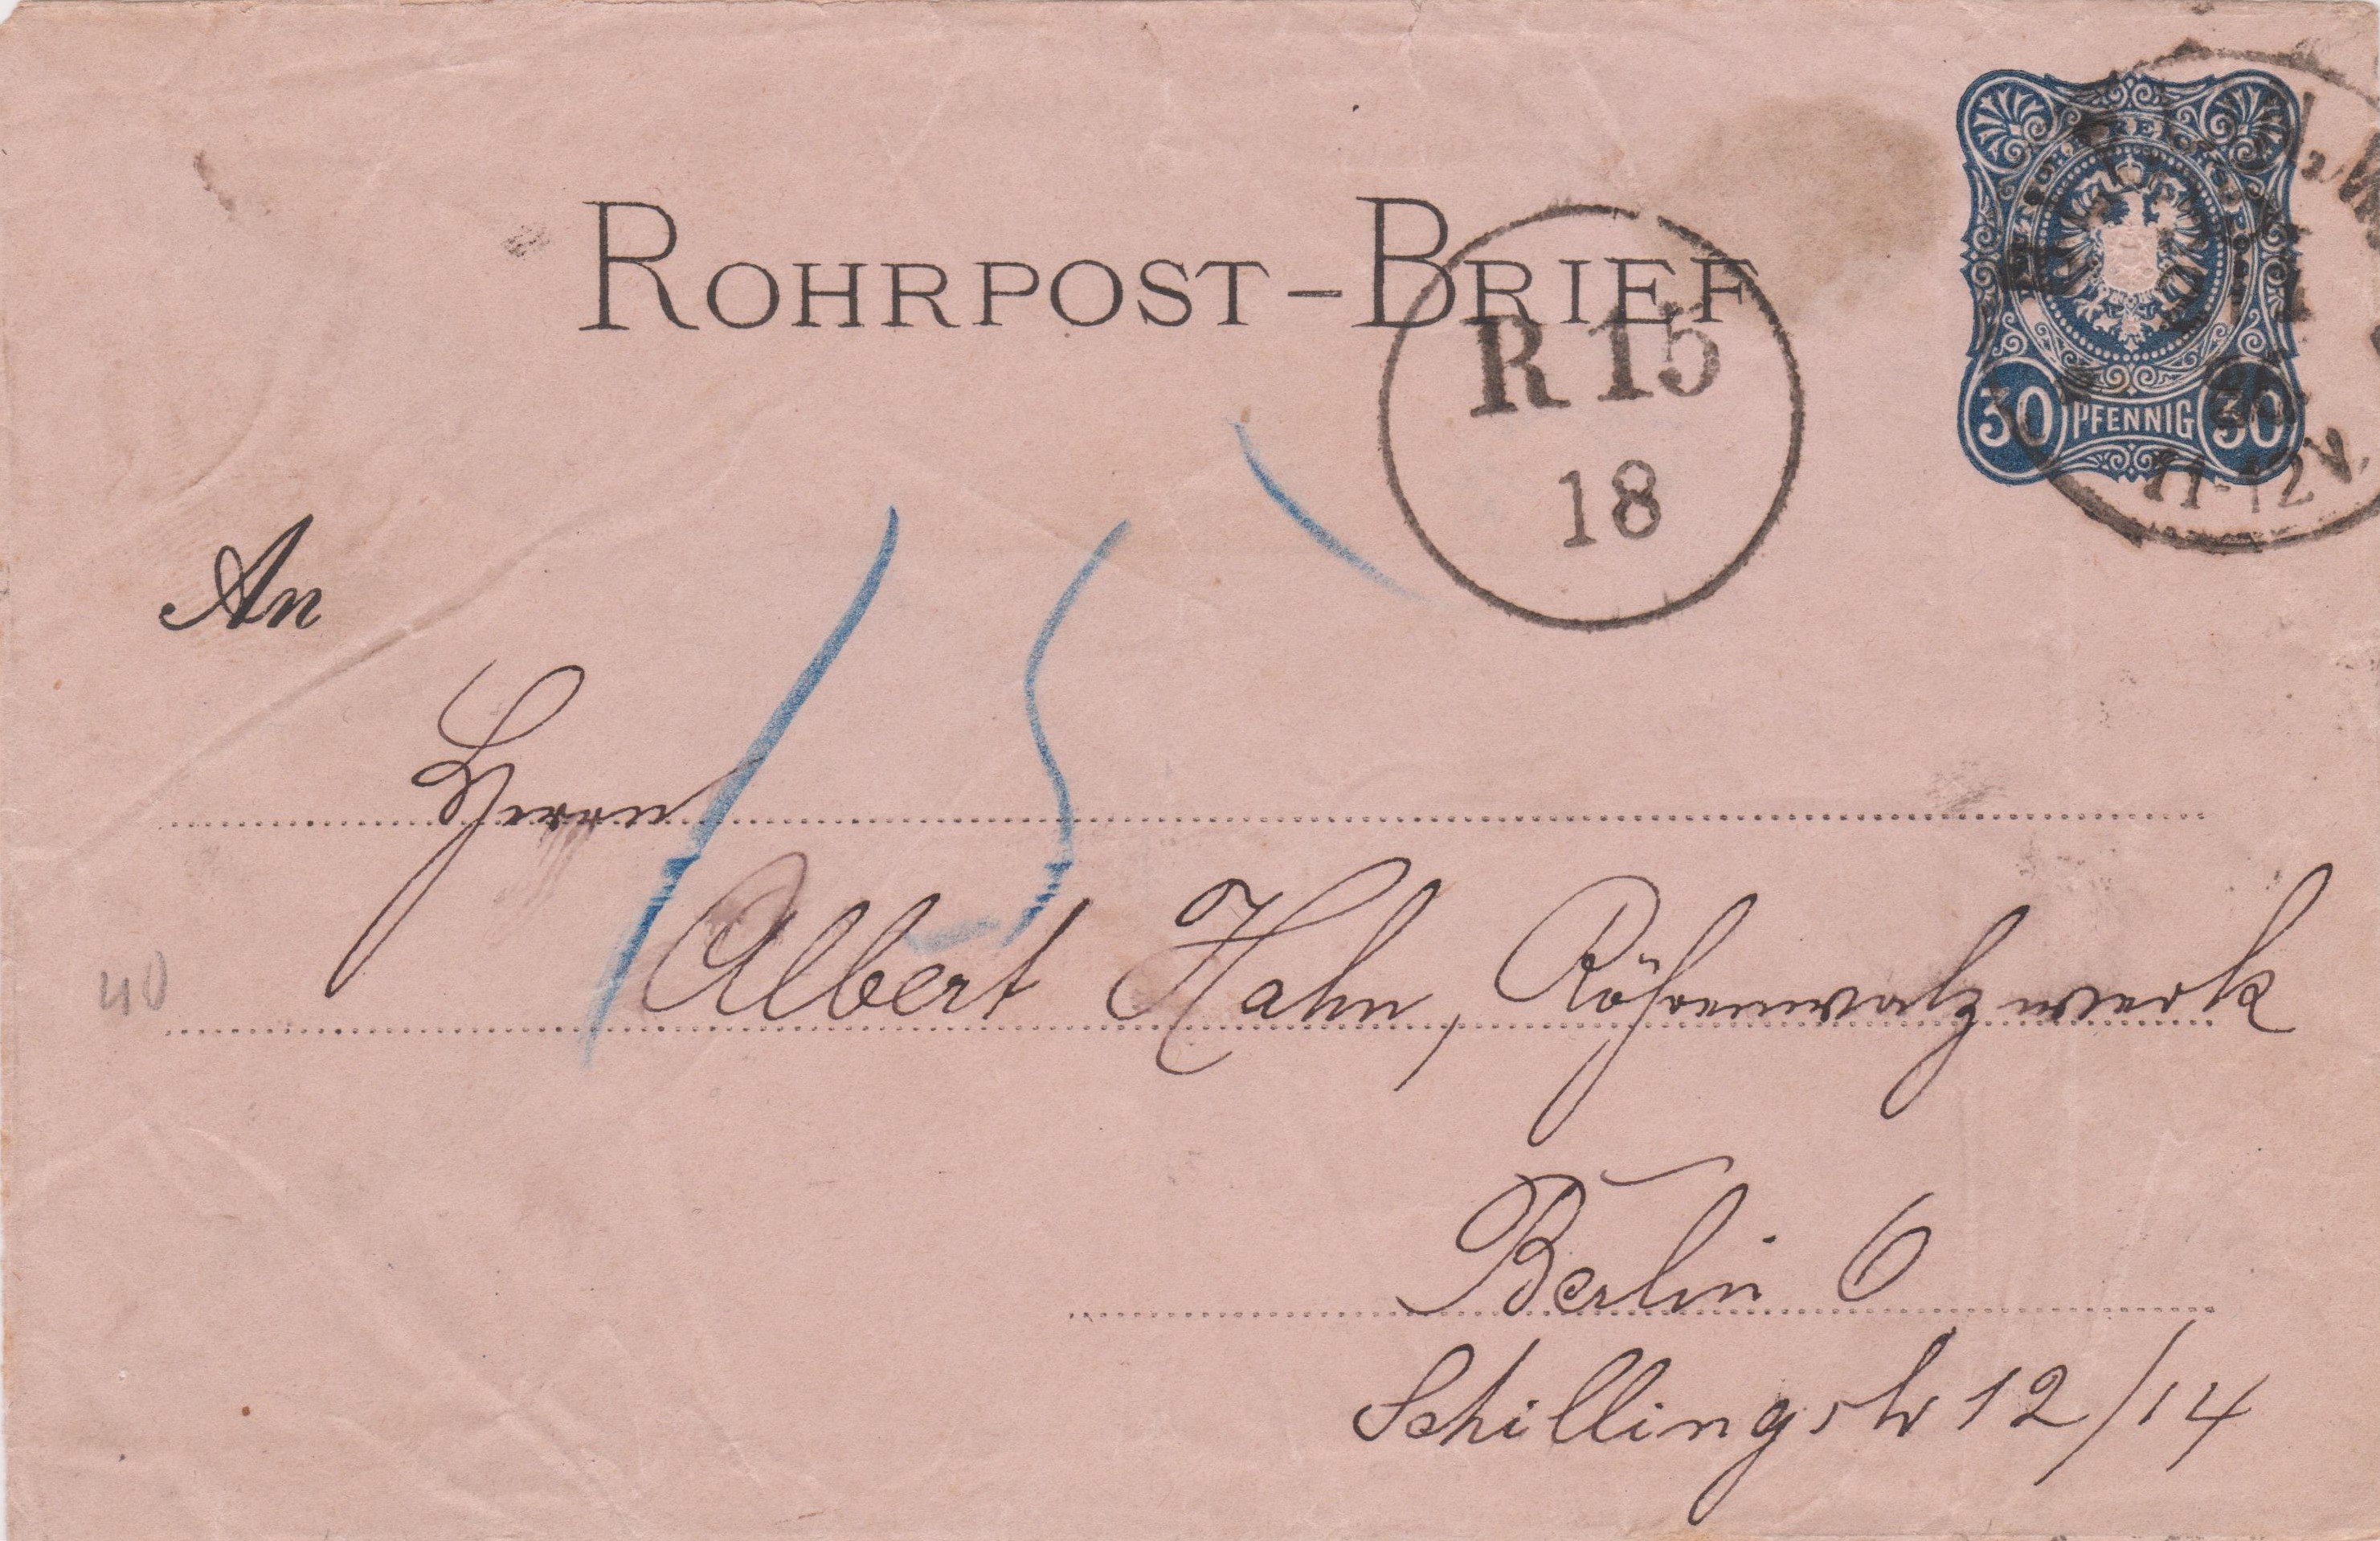 ROHRPOST-BRIEF
30 PFENNIG 30
11-12 V.
R 15
18
An
15
Herrn
Albert Hahn, Röhrenwalzwerk
40
Berlin O
Schillingstr 12/14